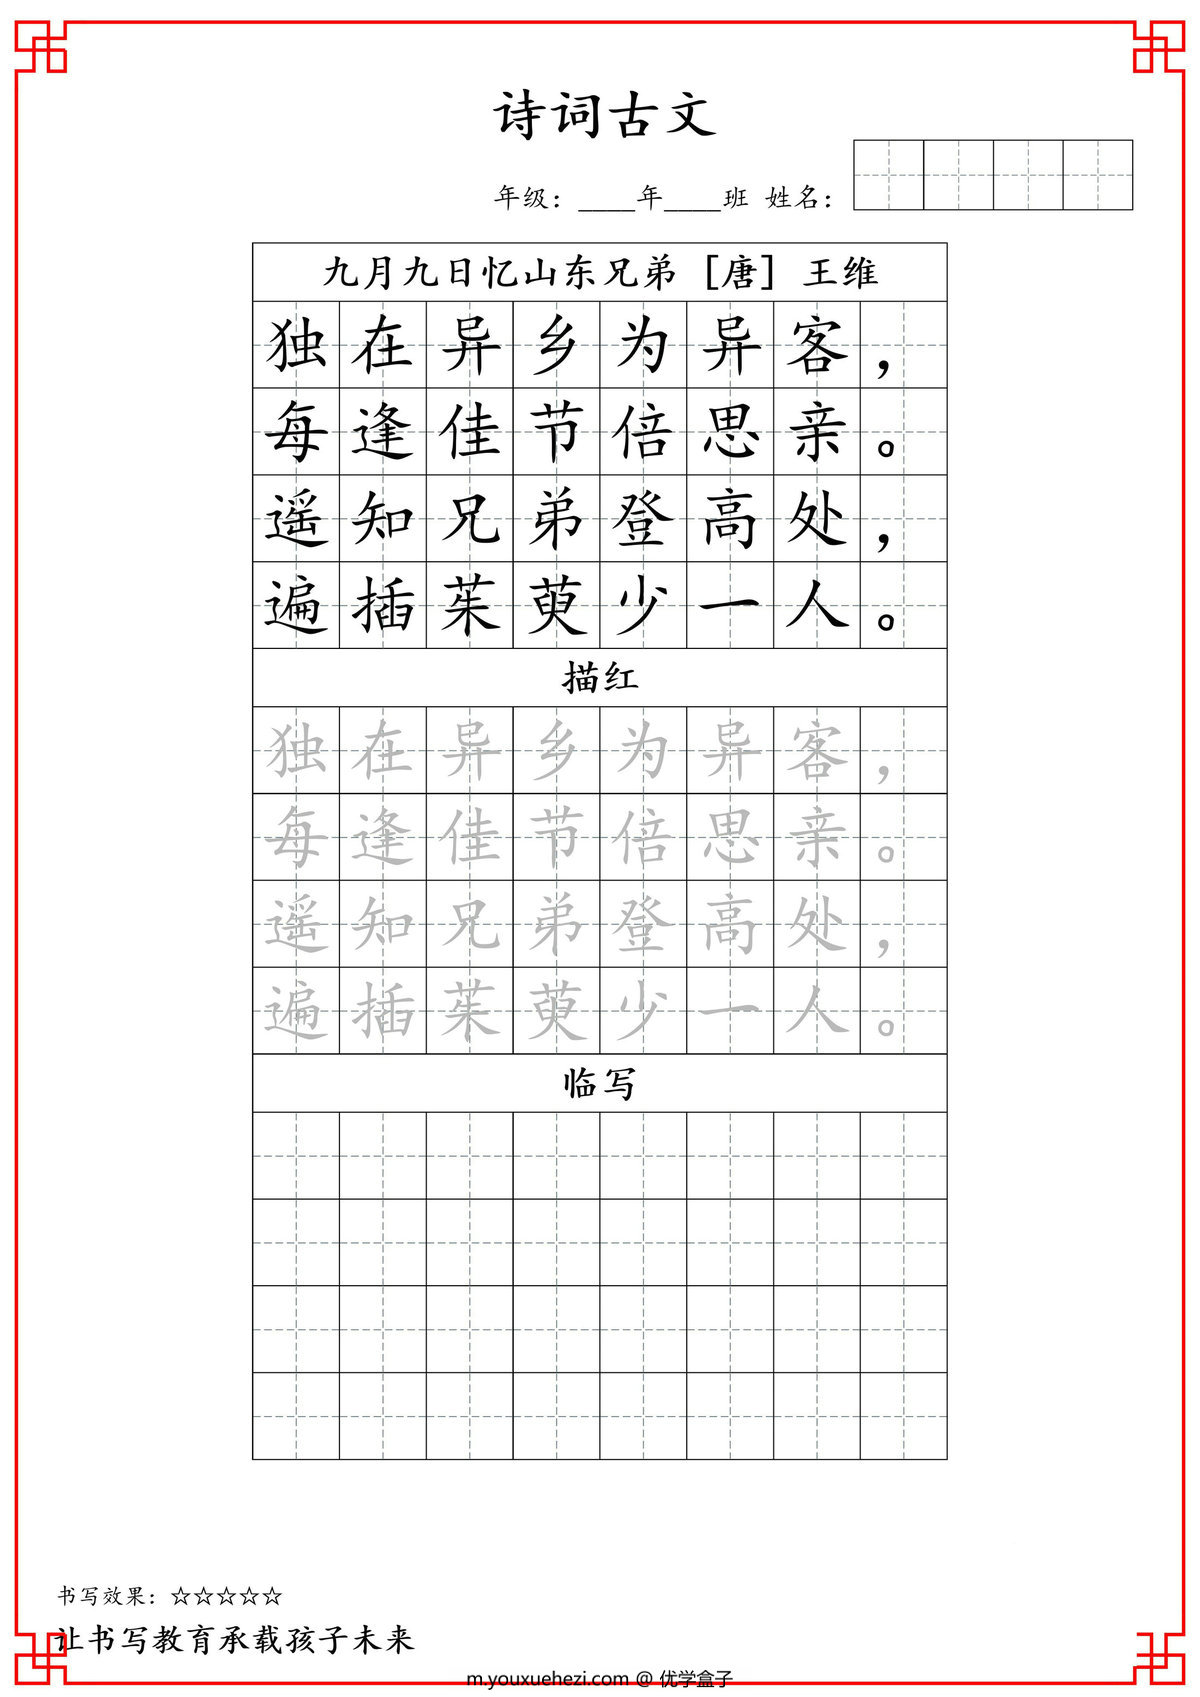 诗词古文
年级：____年____班 姓名：
九月九日忆山东兄弟 [唐] 王维
独在异乡为异客，
每逢佳节倍思亲。
遥知兄弟登高处，
遍插茱萸少一人。
描红
独在异乡为异客，
每逢佳节倍思亲。
遥知兄弟登高处，
遍插茱萸少一人。
临写
书写效果：☆☆☆☆☆
让书写教育承载孩子未来
m.youxuehezi.com @ 优学盒子